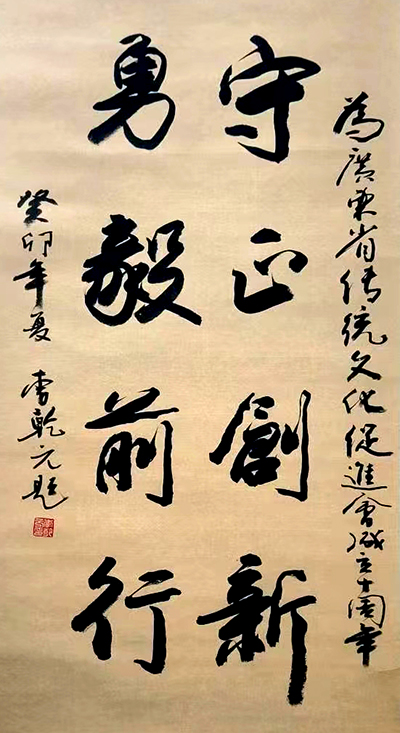 為廣東省传统文化促進會成立十周年
守正創新
勇毅前行
癸卯年夏 李乾元題